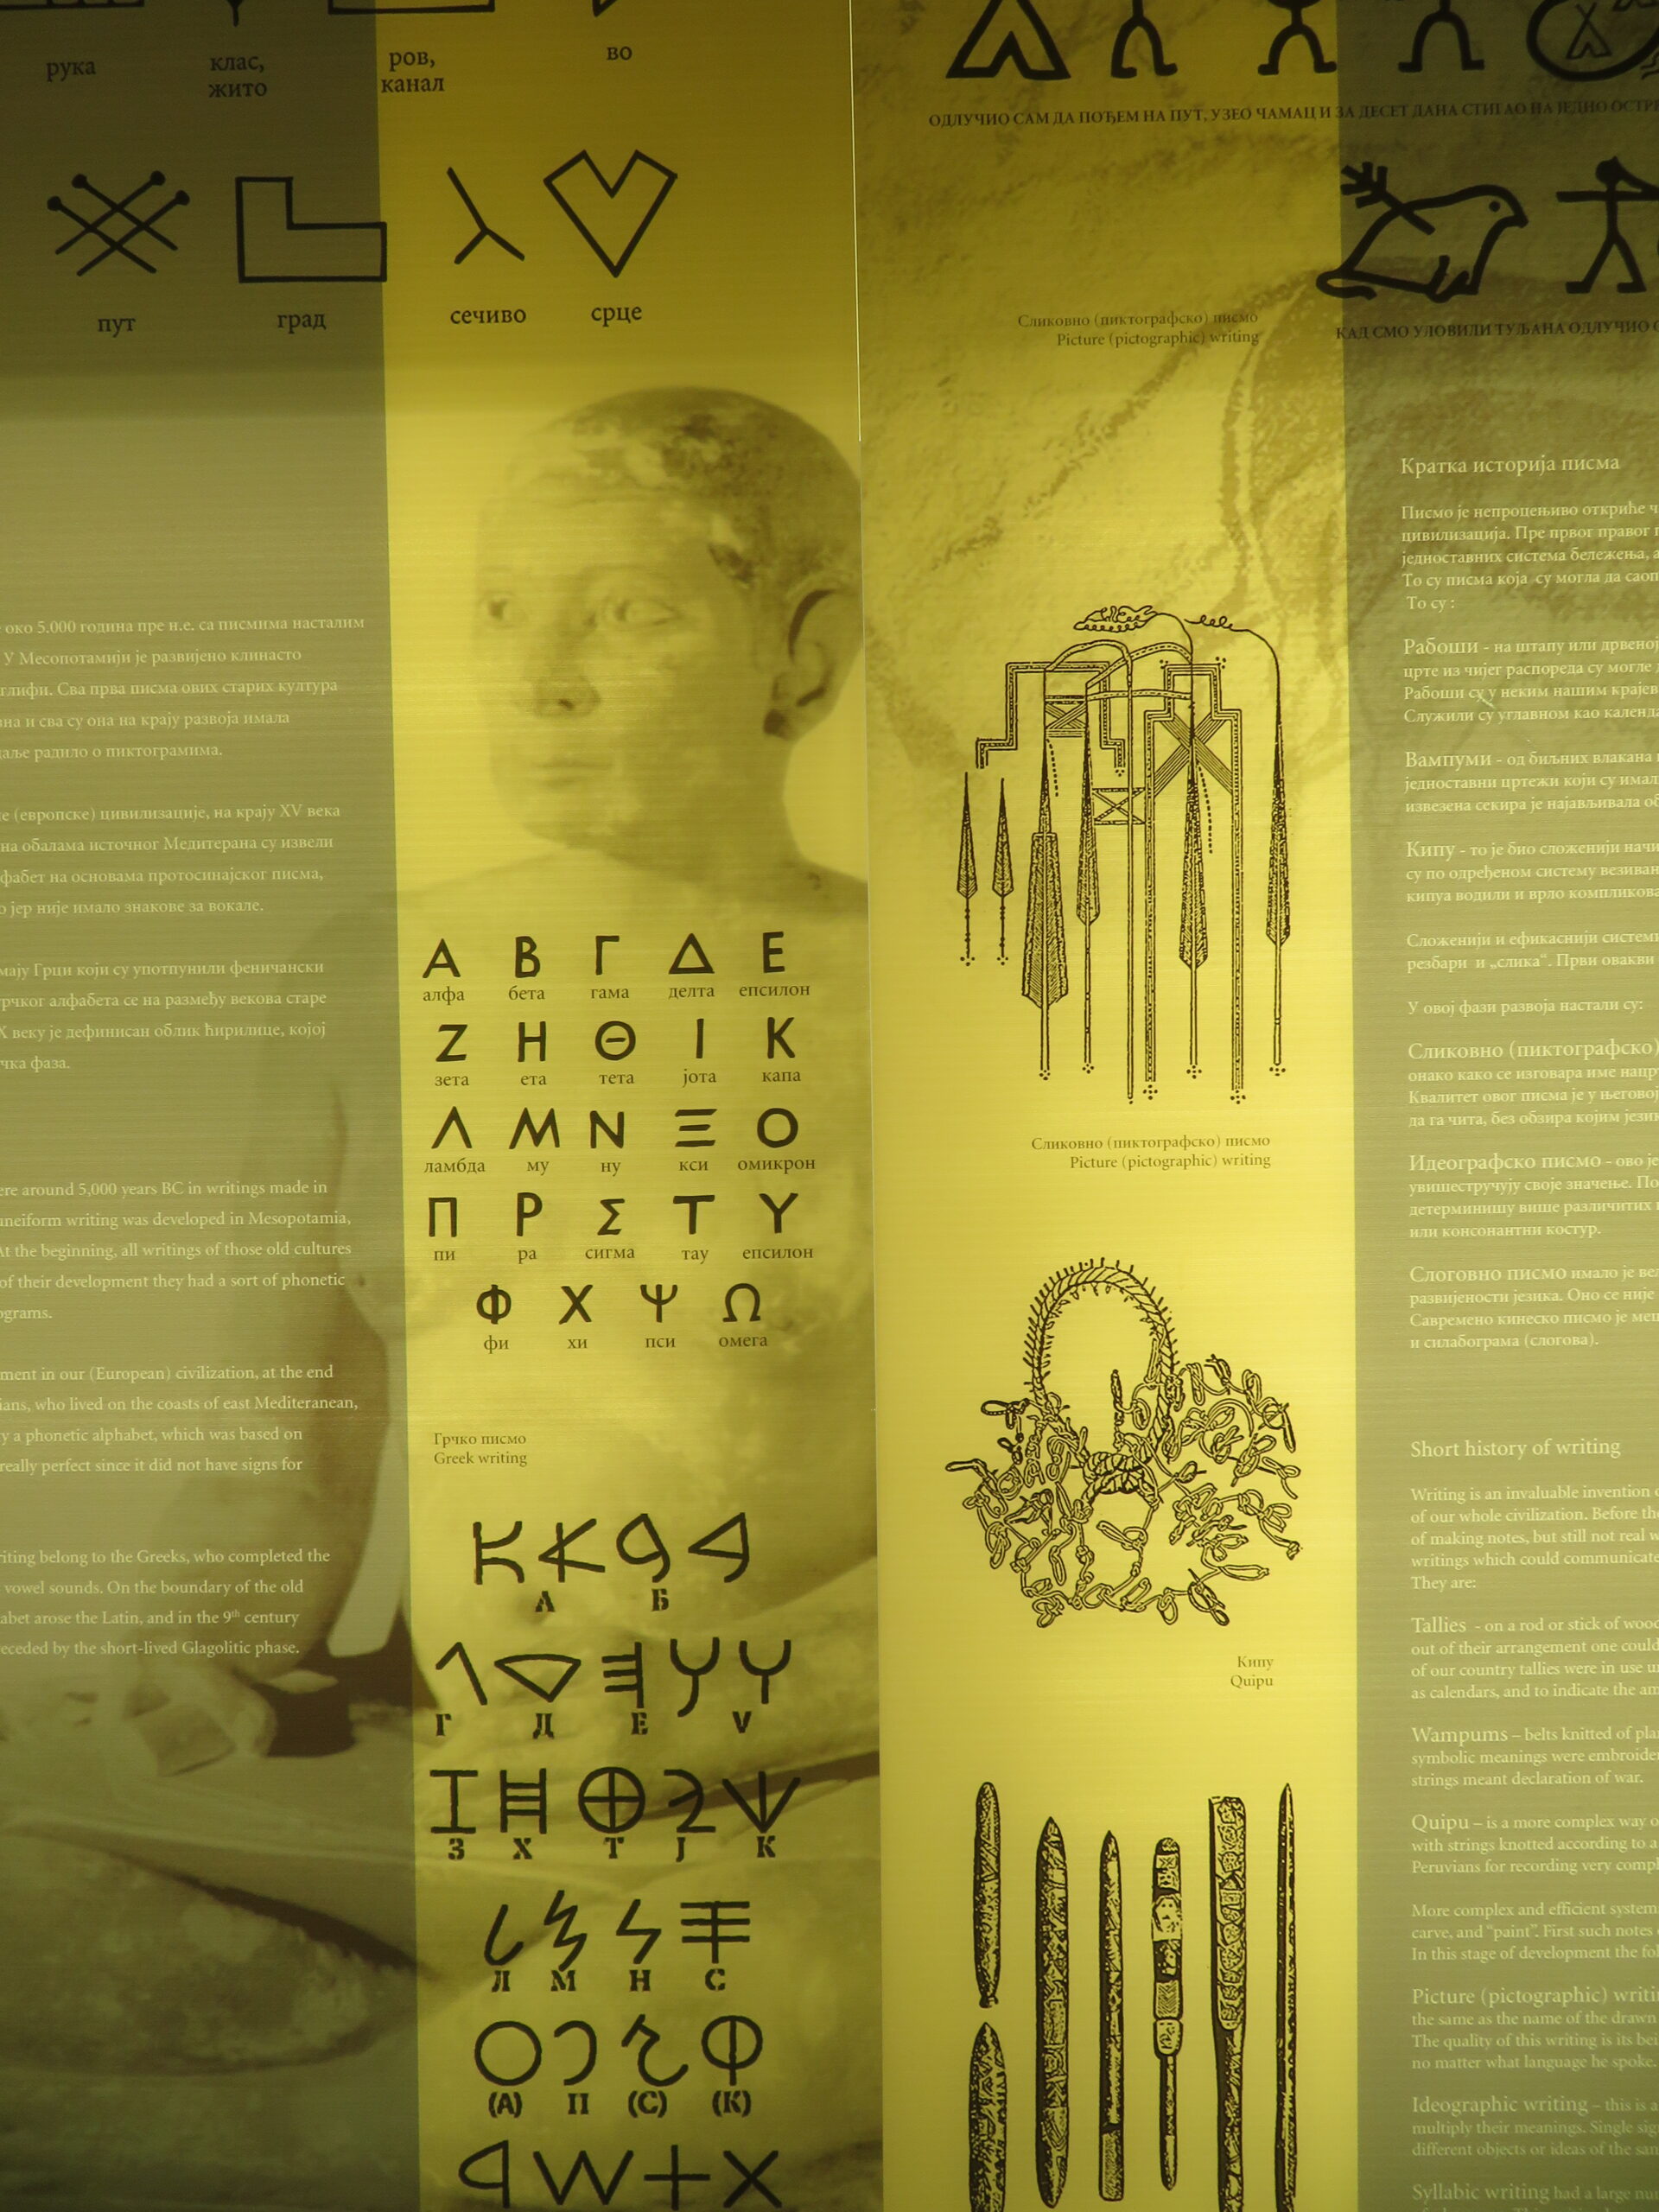 рука
клас,
жито
ров,
канал
во
пут
град
сечиво
срце
око 5.000 година пре н.е. са писмима насталим
У Месопотамији је развијено клинасто
глифи. Сва прва писма ових старих култура
и сва су она на крају развоја имала
радило о пиктограмима.
(европске) цивилизације, на крају XV века
на обалама источног Медитерана су извели
фабет на основама протосинајског писма,
јер није имало знакове за вокале.
мају Грци који су употпунили феничански
рчког алфабета се на размеђу векова старе
X веку је дефинисан облик ћирилице, којој
чка фаза.
ere around 5,000 years BC in writings made in
uneiform writing was developed in Mesopotamia,
At the beginning, all writings of those old cultures
of their development they had a sort of phonetic
ograms.
ment in our (European) civilization, at the end
ians, who lived on the coasts of east Mediteranean,
y a phonetic alphabet, which was based on
really perfect since it did not have signs for
riting belong to the Greeks, who completed the
vowel sounds. On the boundary of the old
abet arose the Latin, and in the 9th century
eceded by the short-lived Glagolitic phase.
Α Β Γ Δ Ε
алфа бета гама делта епсилон
Ζ Η Θ Ι Κ
зета ета тета јота капа
Λ Μ Ν Ξ Ο
ламбда му ну кси омикрон
Π Ρ Σ Τ Υ
пи ра сигма тау епсилон
Φ Χ Ψ Ω
фи хи пси омега
Грчко писмо
Greek writing
А Б
Г Д Е V
З Х Т Ј К
Л М Н С
(А) П (С) (К)
ОДЛУЧИО САМ ДА ПОЂЕМ НА ПУТ, УЗЕО ЧАМАЦ И ЗА ДЕСЕТ ДАНА СТИГАО НА ЈЕДНО ОСТРВ
Сликовно (пиктографско) писмо
Picture (pictographic) writing
КАД СМО УЛОВИЛИ ТУЉАНА ОДЛУЧИО
Сликовно (пиктографско) писмо
Picture (pictographic) writing
Кипу
Quipu
Кратка историја писма
Писмо је непроцењиво откриће ч
цивилизација. Пре првог правог
једноставних система бележења, а
То су писма која су могла да саоп
То су :
Рабоши - на штапу или дрвеној
црте из чијег распореда су могле
Рабоши су у неким нашим крајев
Служили су углавном као календа
Вампуми - од биљних влакана
једноставни цртежи који су имал
извезена секира је најављивала об
Кипу - то је био сложенији начи
су по одређеном систему везиван
кипуа водили и врло компликова
Сложенији и ефикаснији систем
резбари и „слика“. Први овакви
У овој фази развоја настали су:
Сликовно (пиктографско)
онако како се изговара име нацр
Квалитет овог писма је у његовој
да га чита, без обзира којим јези
Идеографско писмо - ово је
увишестручују своје значење. По
детерминишу више различитих
или консонантни костур.
Слоговно писмо имало је вел
развијености језика. Оно се није
Савремено кинеско писмо је меш
и силабограма (слогова).
Short history of writing
Writing is an invaluable invention
of our whole civilization. Before the
of making notes, but still not real w
writings which could communicate
They are:
Tallies - on a rod or stick of wood
out of their arrangement one could
of our country tallies were in use u
as calendars, and to indicate the am
Wampums – belts knitted of plan
symbolic meanings were embroider
strings meant declaration of war.
Quipu – is a more complex way o
with strings knotted according to a
Peruvians for recording very compl
More complex and efficient system
carve, and “paint”. First such notes
In this stage of development the fol
Picture (pictographic) writi
the same as the name of the drawn
The quality of this writing is its bei
no matter what language he spoke.
Ideographic writing – this is a
multiply their meanings. Single sig
different objects or ideas of the sam
Syllabic writing had a large nu